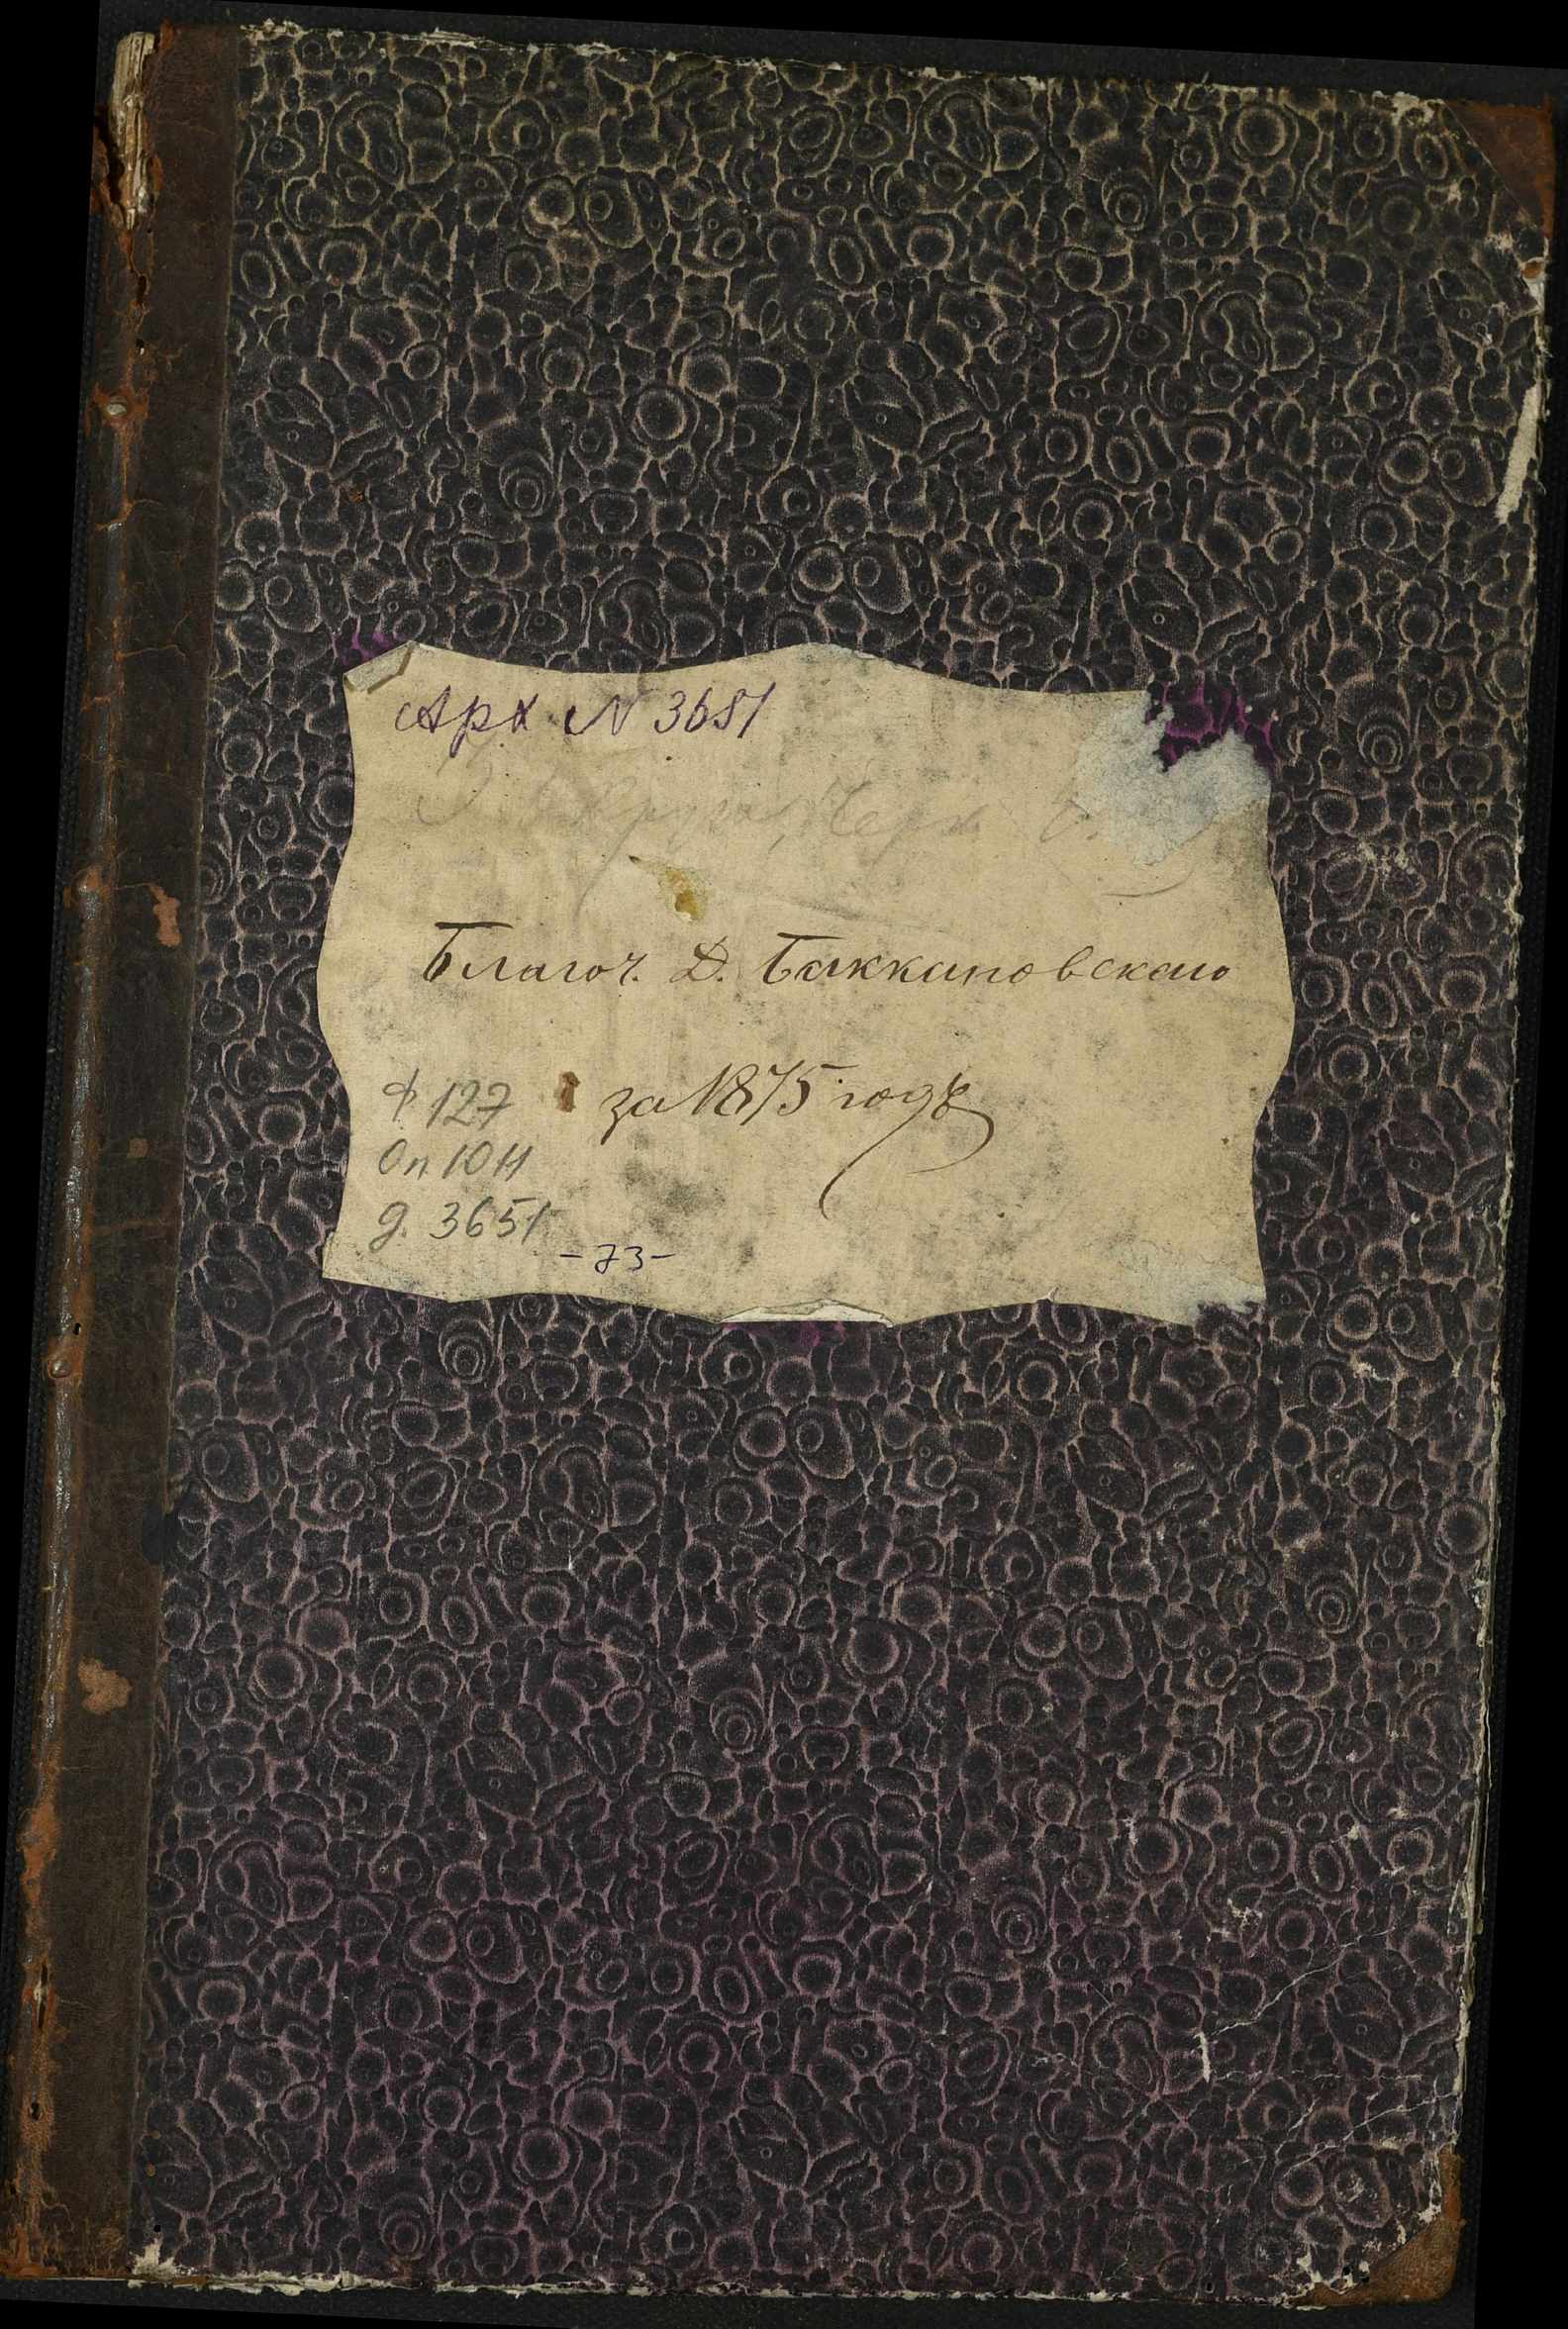 Арх № 3651
Благоч. Д. Баккановскаго
за 1875 годъ
Ф 127
Оп 1011
д. 3651
-73-